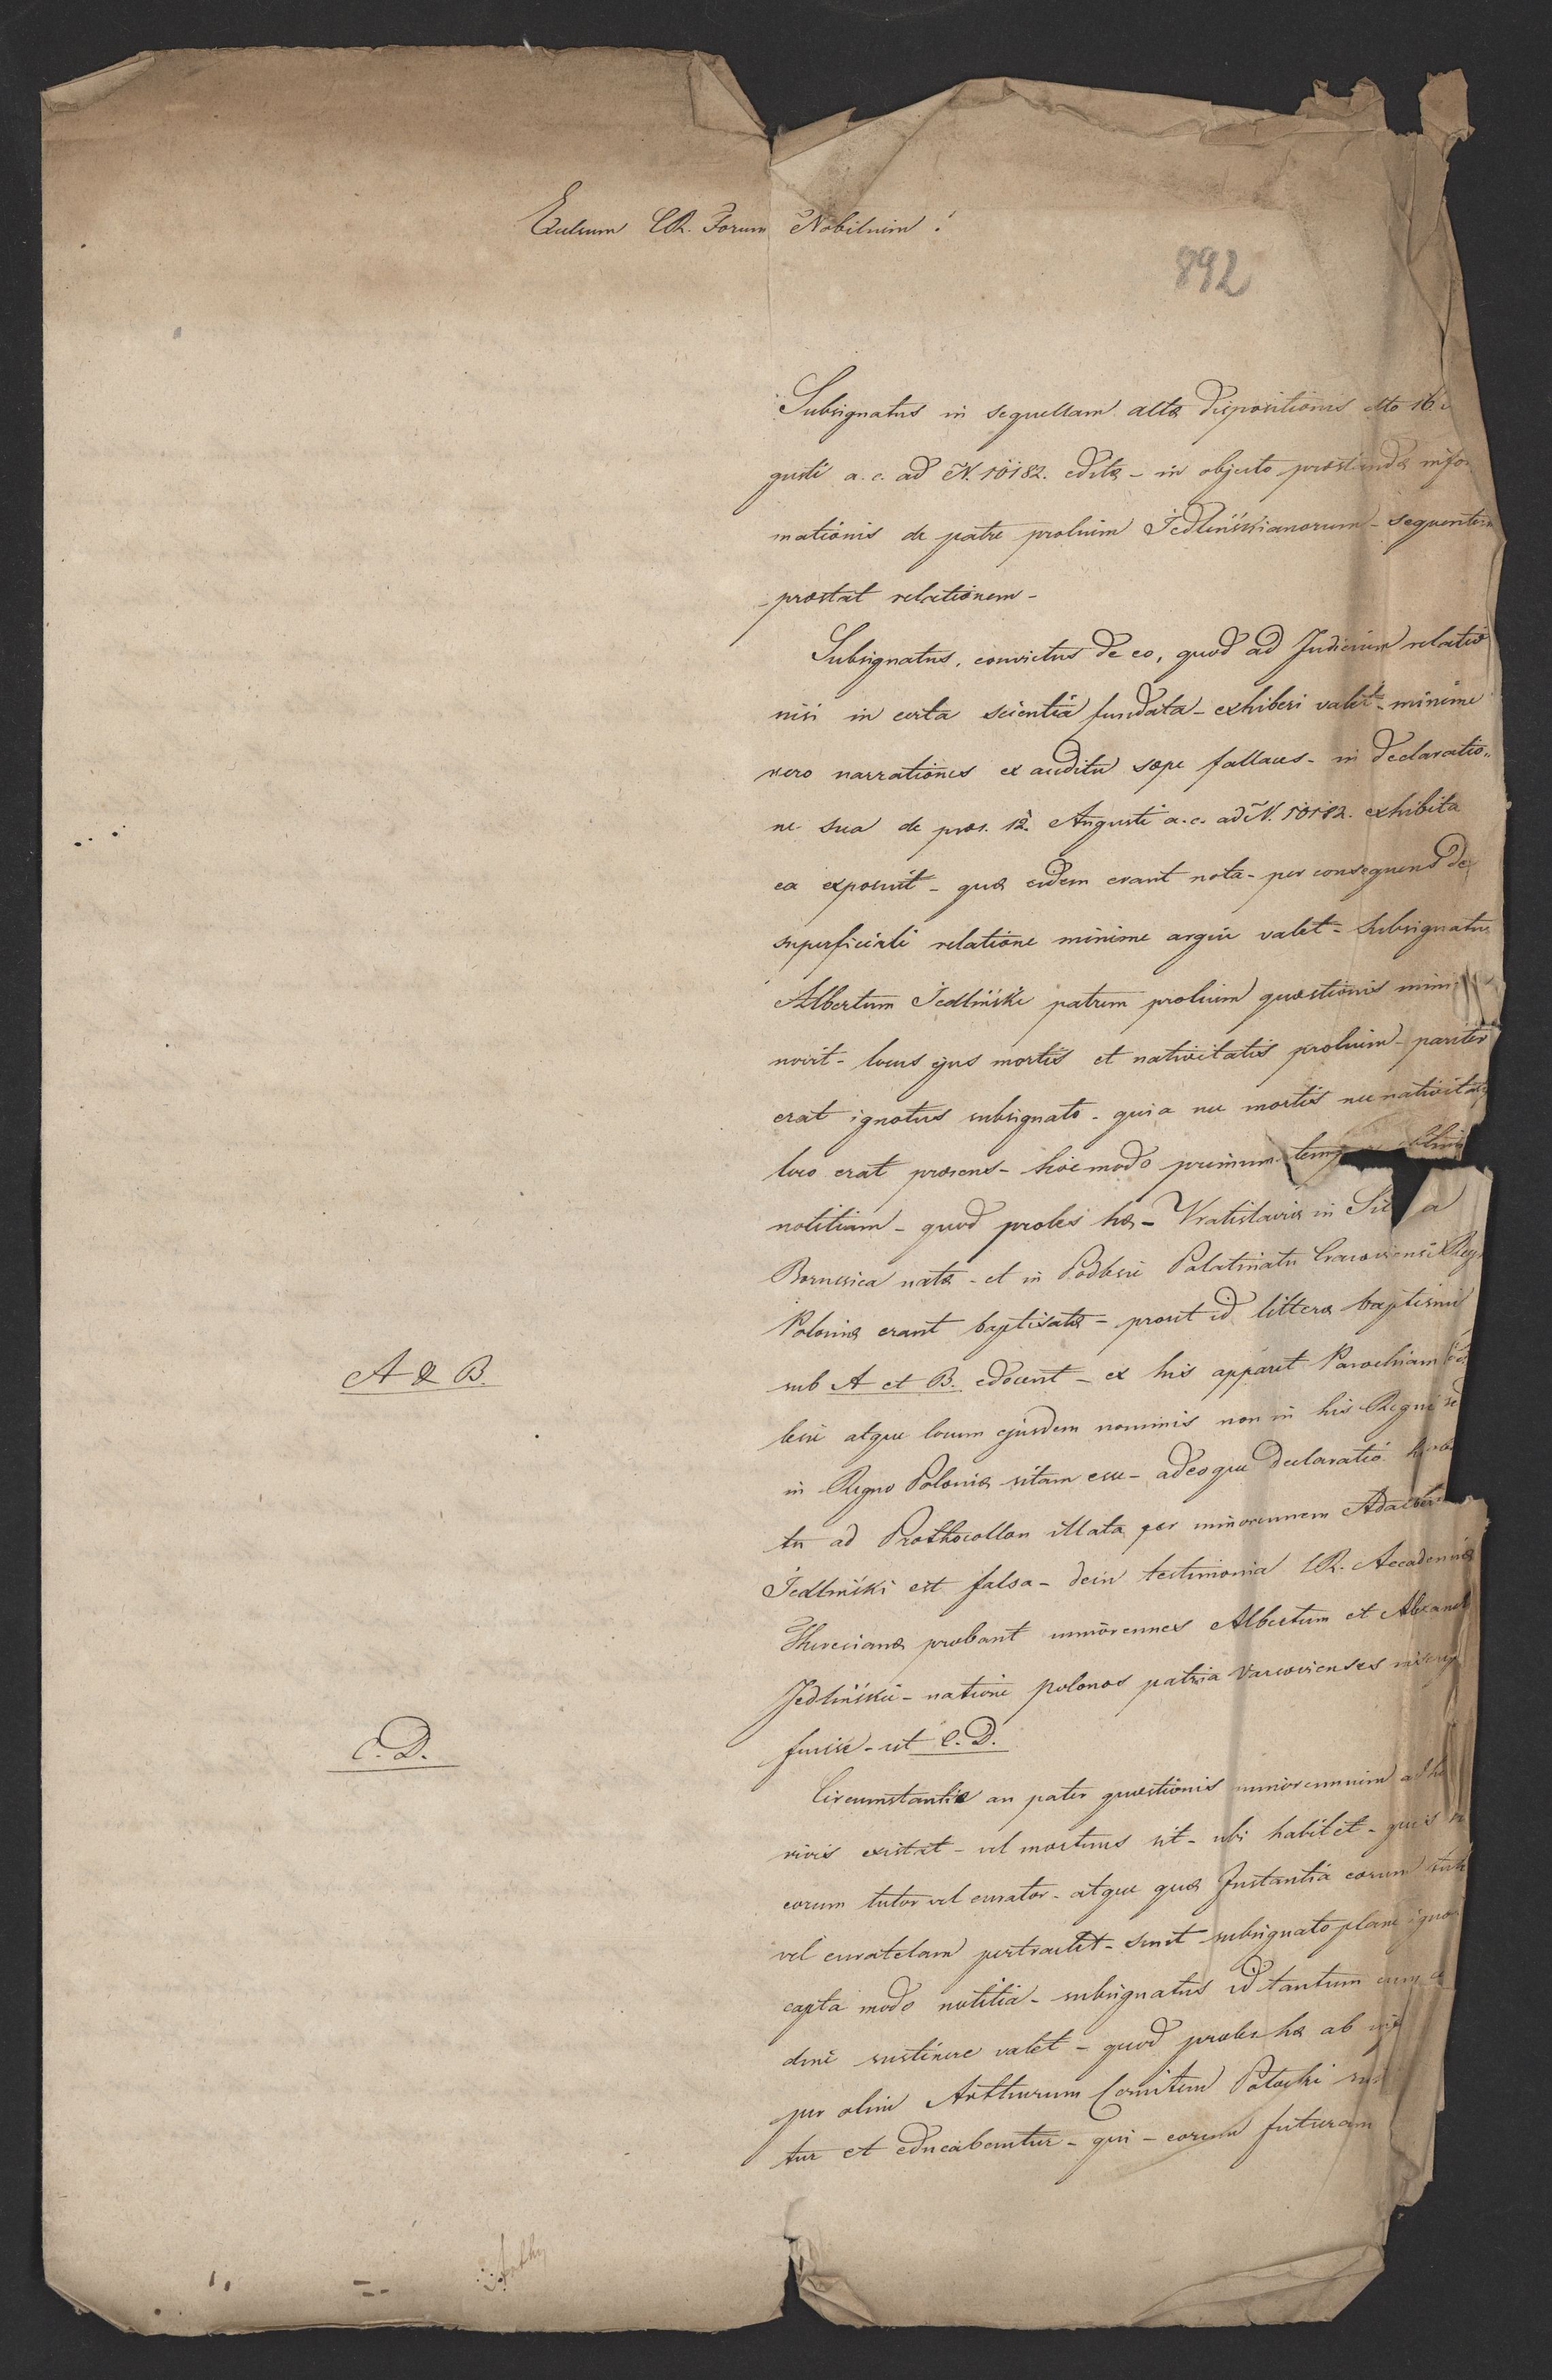 Excelsum C.R. Forum Nobilium!
892
Subsignatus in sequellam altæ dispositionis dto 16
gusti a. c. ad N. 10182. editæ - in objecto præstandæ infor
mationis de patre prolium Jedlińskianorum - sequentem
præstat relationem -
Subsignatus, convictus de eo, quod ad Judicium relatio
nisi in certa scientia fundata - exhiberi valet - minime
vero narrationes ex auditu sæpe fallaces - in declaratio„
ne sua de præs. 12. Augusti a. c. ad N. 10182. exhibita
ea exposuit - quæ eidem erant nota - per consequens de
superficiali relatione minime argui valet - Subsignatus
Albertum Jedliński patrem prolium quæstionis mini
novit - locus ejus mortis et nativitatis prolium - pariter
erat ignotus subsignato - quia nec mortis nec nativitatis
loco erat præsens - hocce modo primum
notitiam - quod proles hæ - Vratislaviæ in a
Borussica natæ - et in Podlesie Palatinatu Cracoviensi Reg
Poloniæ erant baptisatæ - prout id litteræ baptismi
A & B.
sub A et B. edocent - ex his apparet Parochiam Pod
lesie atque locum ejusdem nominis non in his Regnis sed
in Regno Poloniæ sitam esse - adeoque declaratio
tu ad Prothocollon illata per minorennem Adalber
Jedliński est falsa - dein testimonia C.R. Accademiæ
Theresianæ probant minorennes Albertum et Alexand
Jedliński - natione polonos patria Varsovienses
C. D.
fuisse - ut C. D.
Circumstantiæ an pater quæstionis minorennium adhu
vivis existat - vel mortuus sit - ubi habitet - quis
eorum tutor vel curator - atque quæ Instantia eorum tut
vel curatelam pertractet - sunt subsignato plane ignot
capta modo notitia - subsignatus id tantum
dine sustinere valet - quod proles hæ ab
per olim Arthurum Comitem Potocki
tur et educabantur - qui - eorum futuram